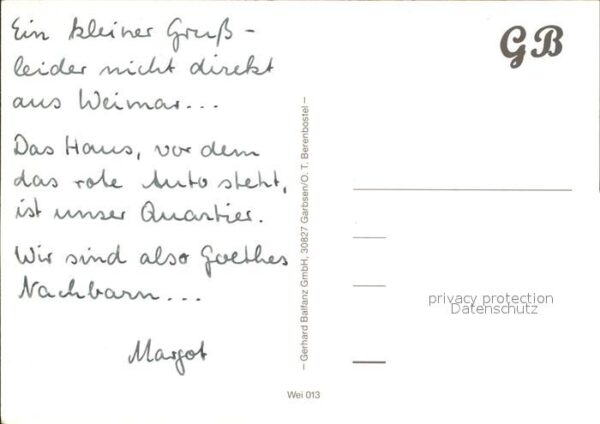 Ein kleiner Gruß -
leider nicht direkt
aus Weimar...
Das Haus, vor dem
das rote Auto steht,
ist unser Quartier.
Wir sind also Goethes
Nachbarn...
Margot
– Gerhard Balfanz GmbH, 30827 Garbsen/O. T. Berenbostel –
Wei 013
GB
privacy protection
Datenschutz